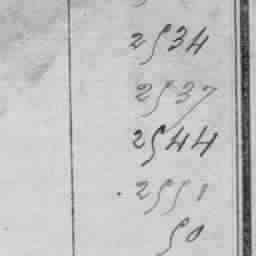 2534
2537
2544
2551
50